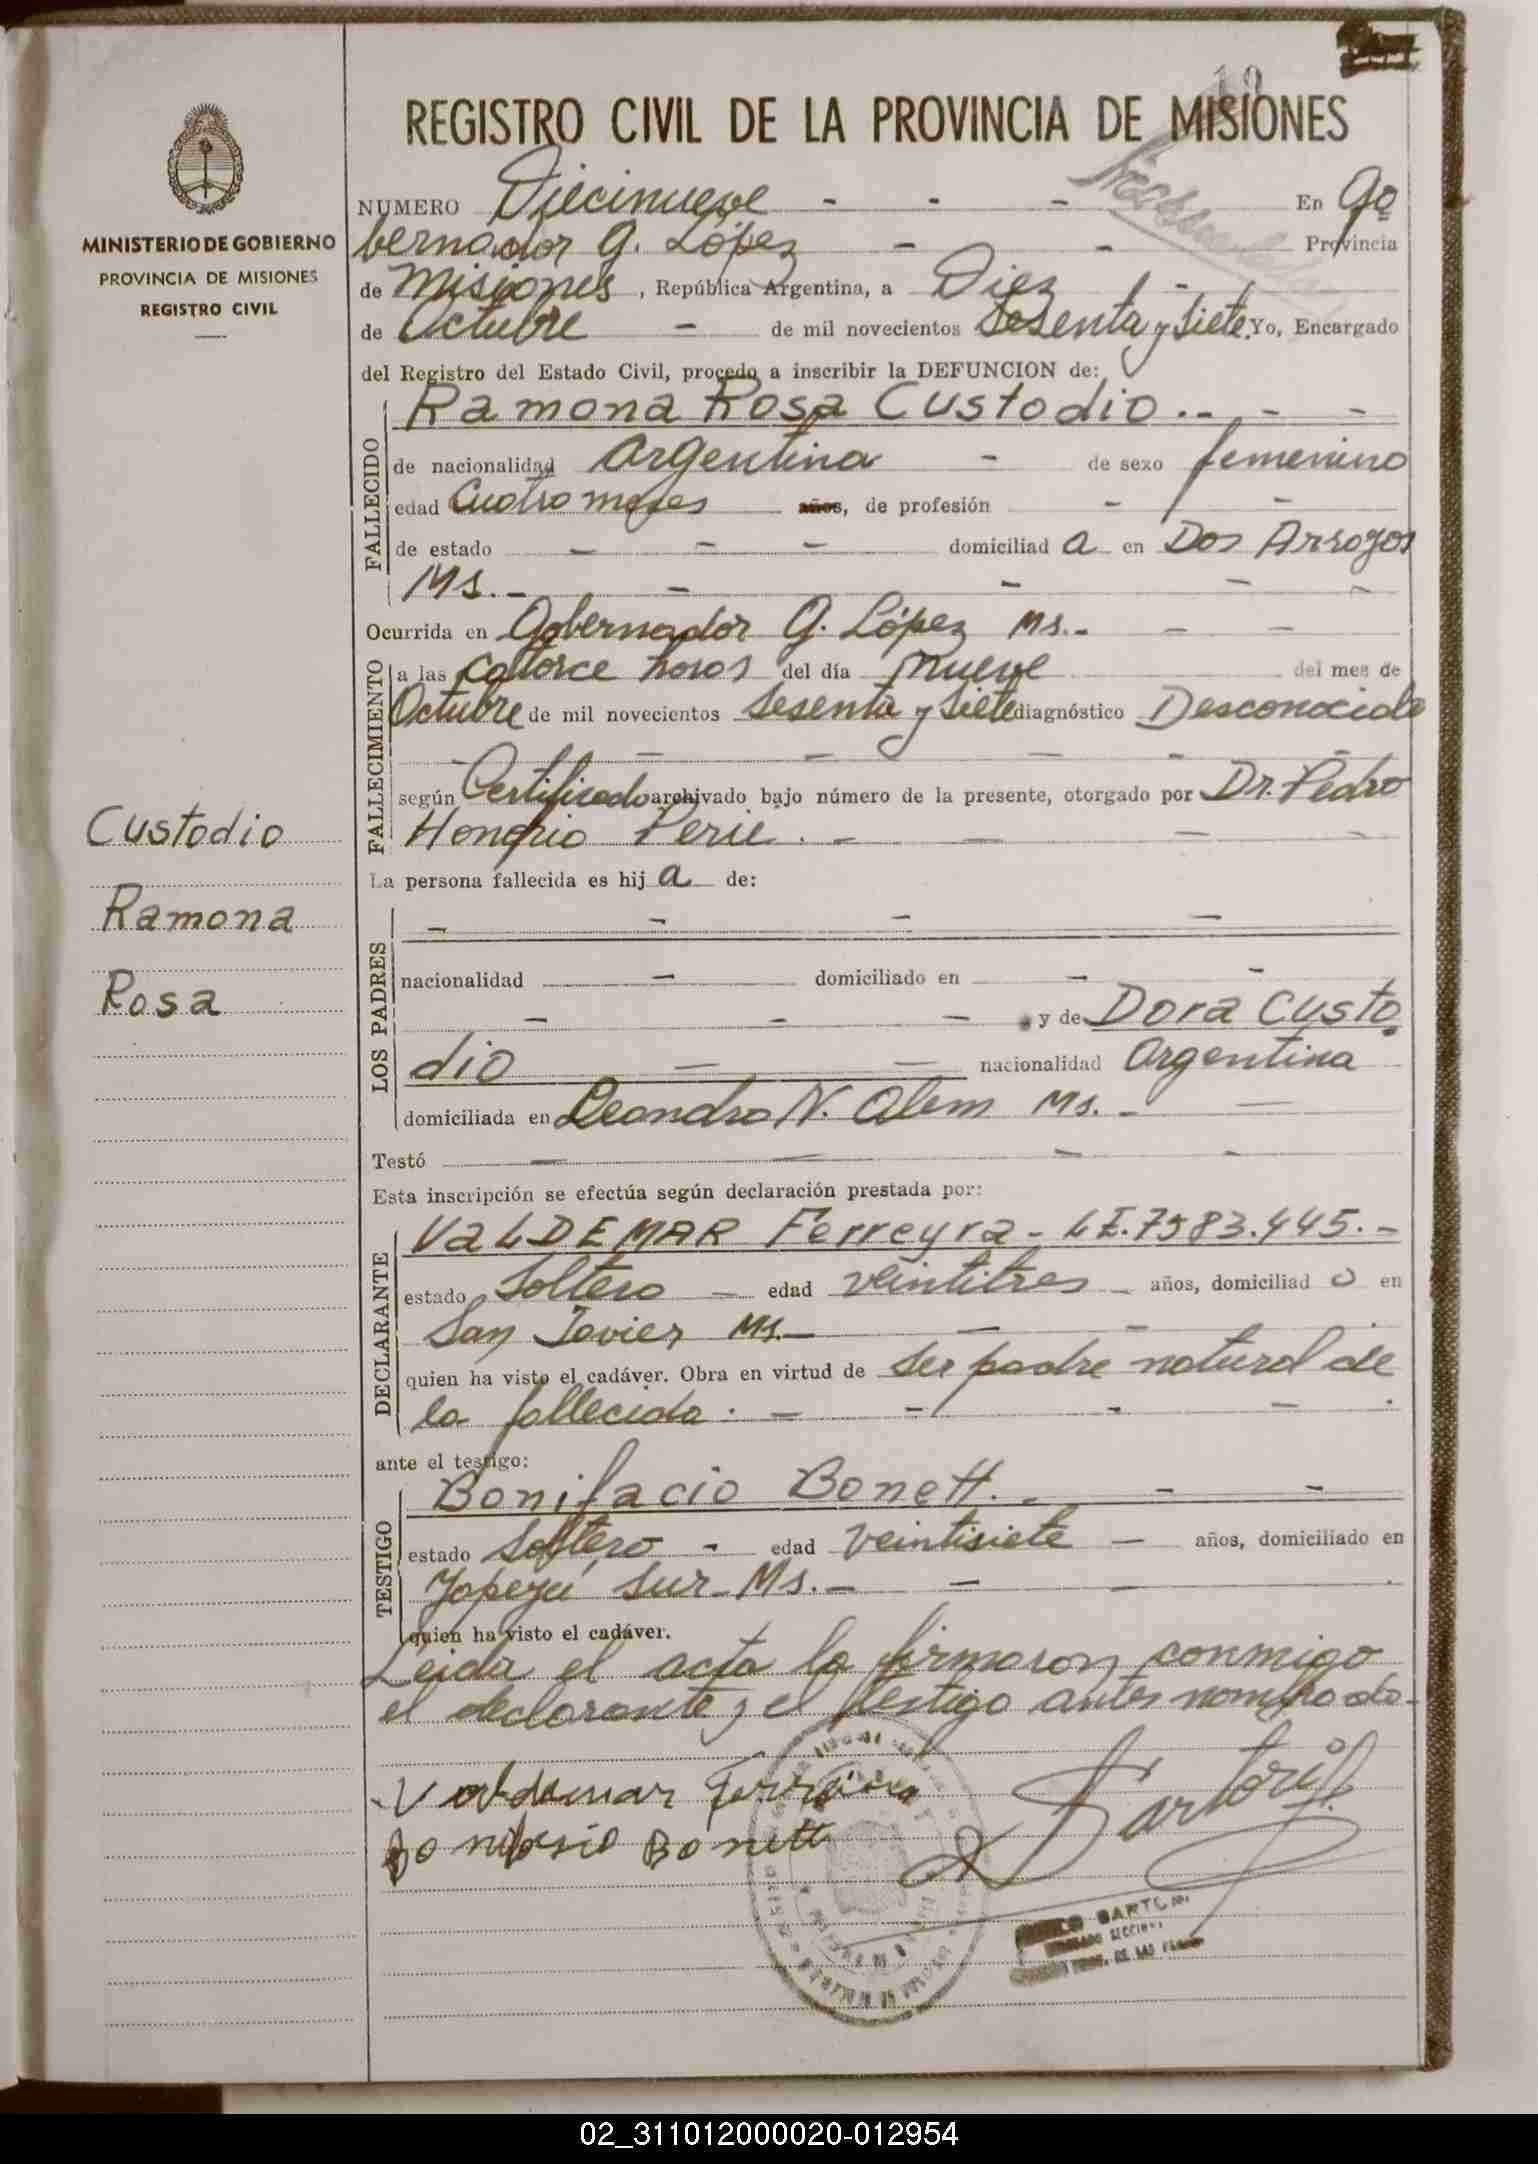 REGISTRO CIVIL DE LA PROVINCIA DE MISIONES
MINISTERIO DE GOBIERNO
PROVINCIA DE MISIONES
REGISTRO CIVIL
NUMERO Diecinueve - - - En Go
bernador G. López - - Provincia
de Misiones, República Argentina, a Diez -
de Octubre - de mil novecientos Sesenta y Siete. Yo, Encargado
del Registro del Estado Civil, procedo a inscribir la DEFUNCION de:
FALLECIDO
Ramona Rosa Custodio. - - -
de nacionalidad Argentina - de sexo femenino
edad Cuatro meses años, de profesión - -
de estado - - - domiciliad a en Dos Arroyos
Ms. - - - - -
Ocurrida en Gobernador G. López Ms. - - -
FALLECIMIENTO
a las catorce horas del día nueve del mes de
Octubre de mil novecientos Sesenta y Siete diagnóstico Desconocido
- - - - - -
según Certificado archivado bajo número de la presente, otorgado por Dr. Pedro
Honorio Perié. - - - -
La persona fallecida es hij a de:
LOS PADRES
- - - -
nacionalidad - domiciliado en - -
- - - y de Dora Custo
dio - - nacionalidad Argentina
domiciliada en Leandro N. Alem Ms. - -
Testó - - - -
Esta inscripción se efectúa según declaración prestada por:
DECLARANTE
VALDEMAR Ferreyra - LE. 7583.445. -
estado Soltero - edad veintitres - años, domiciliad o en
San Javier Ms. - - -
quien ha visto el cadáver. Obra en virtud de ser padre natural de
la fallecida. - - - -
ante el testigo:
TESTIGO
Bonifacio Bonett. - - -
estado Soltero - edad veintisiete - años, domiciliado en
Yapeyú Sur Ms. - - -
quien ha visto el cadáver.
Leida el acta la firmaron conmigo
el declarante y el testigo antes nombrado -
Custodio
Ramona
Rosa
Valdemar Ferreira
Bonifasio Bonett
Sartori
02_311012000020-012954